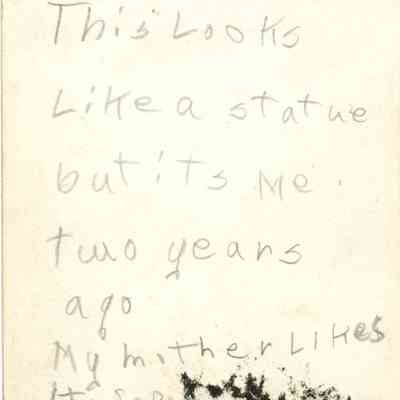 This Looks
Like a statue
but its Me.
two years
ago
My mother Likes
It